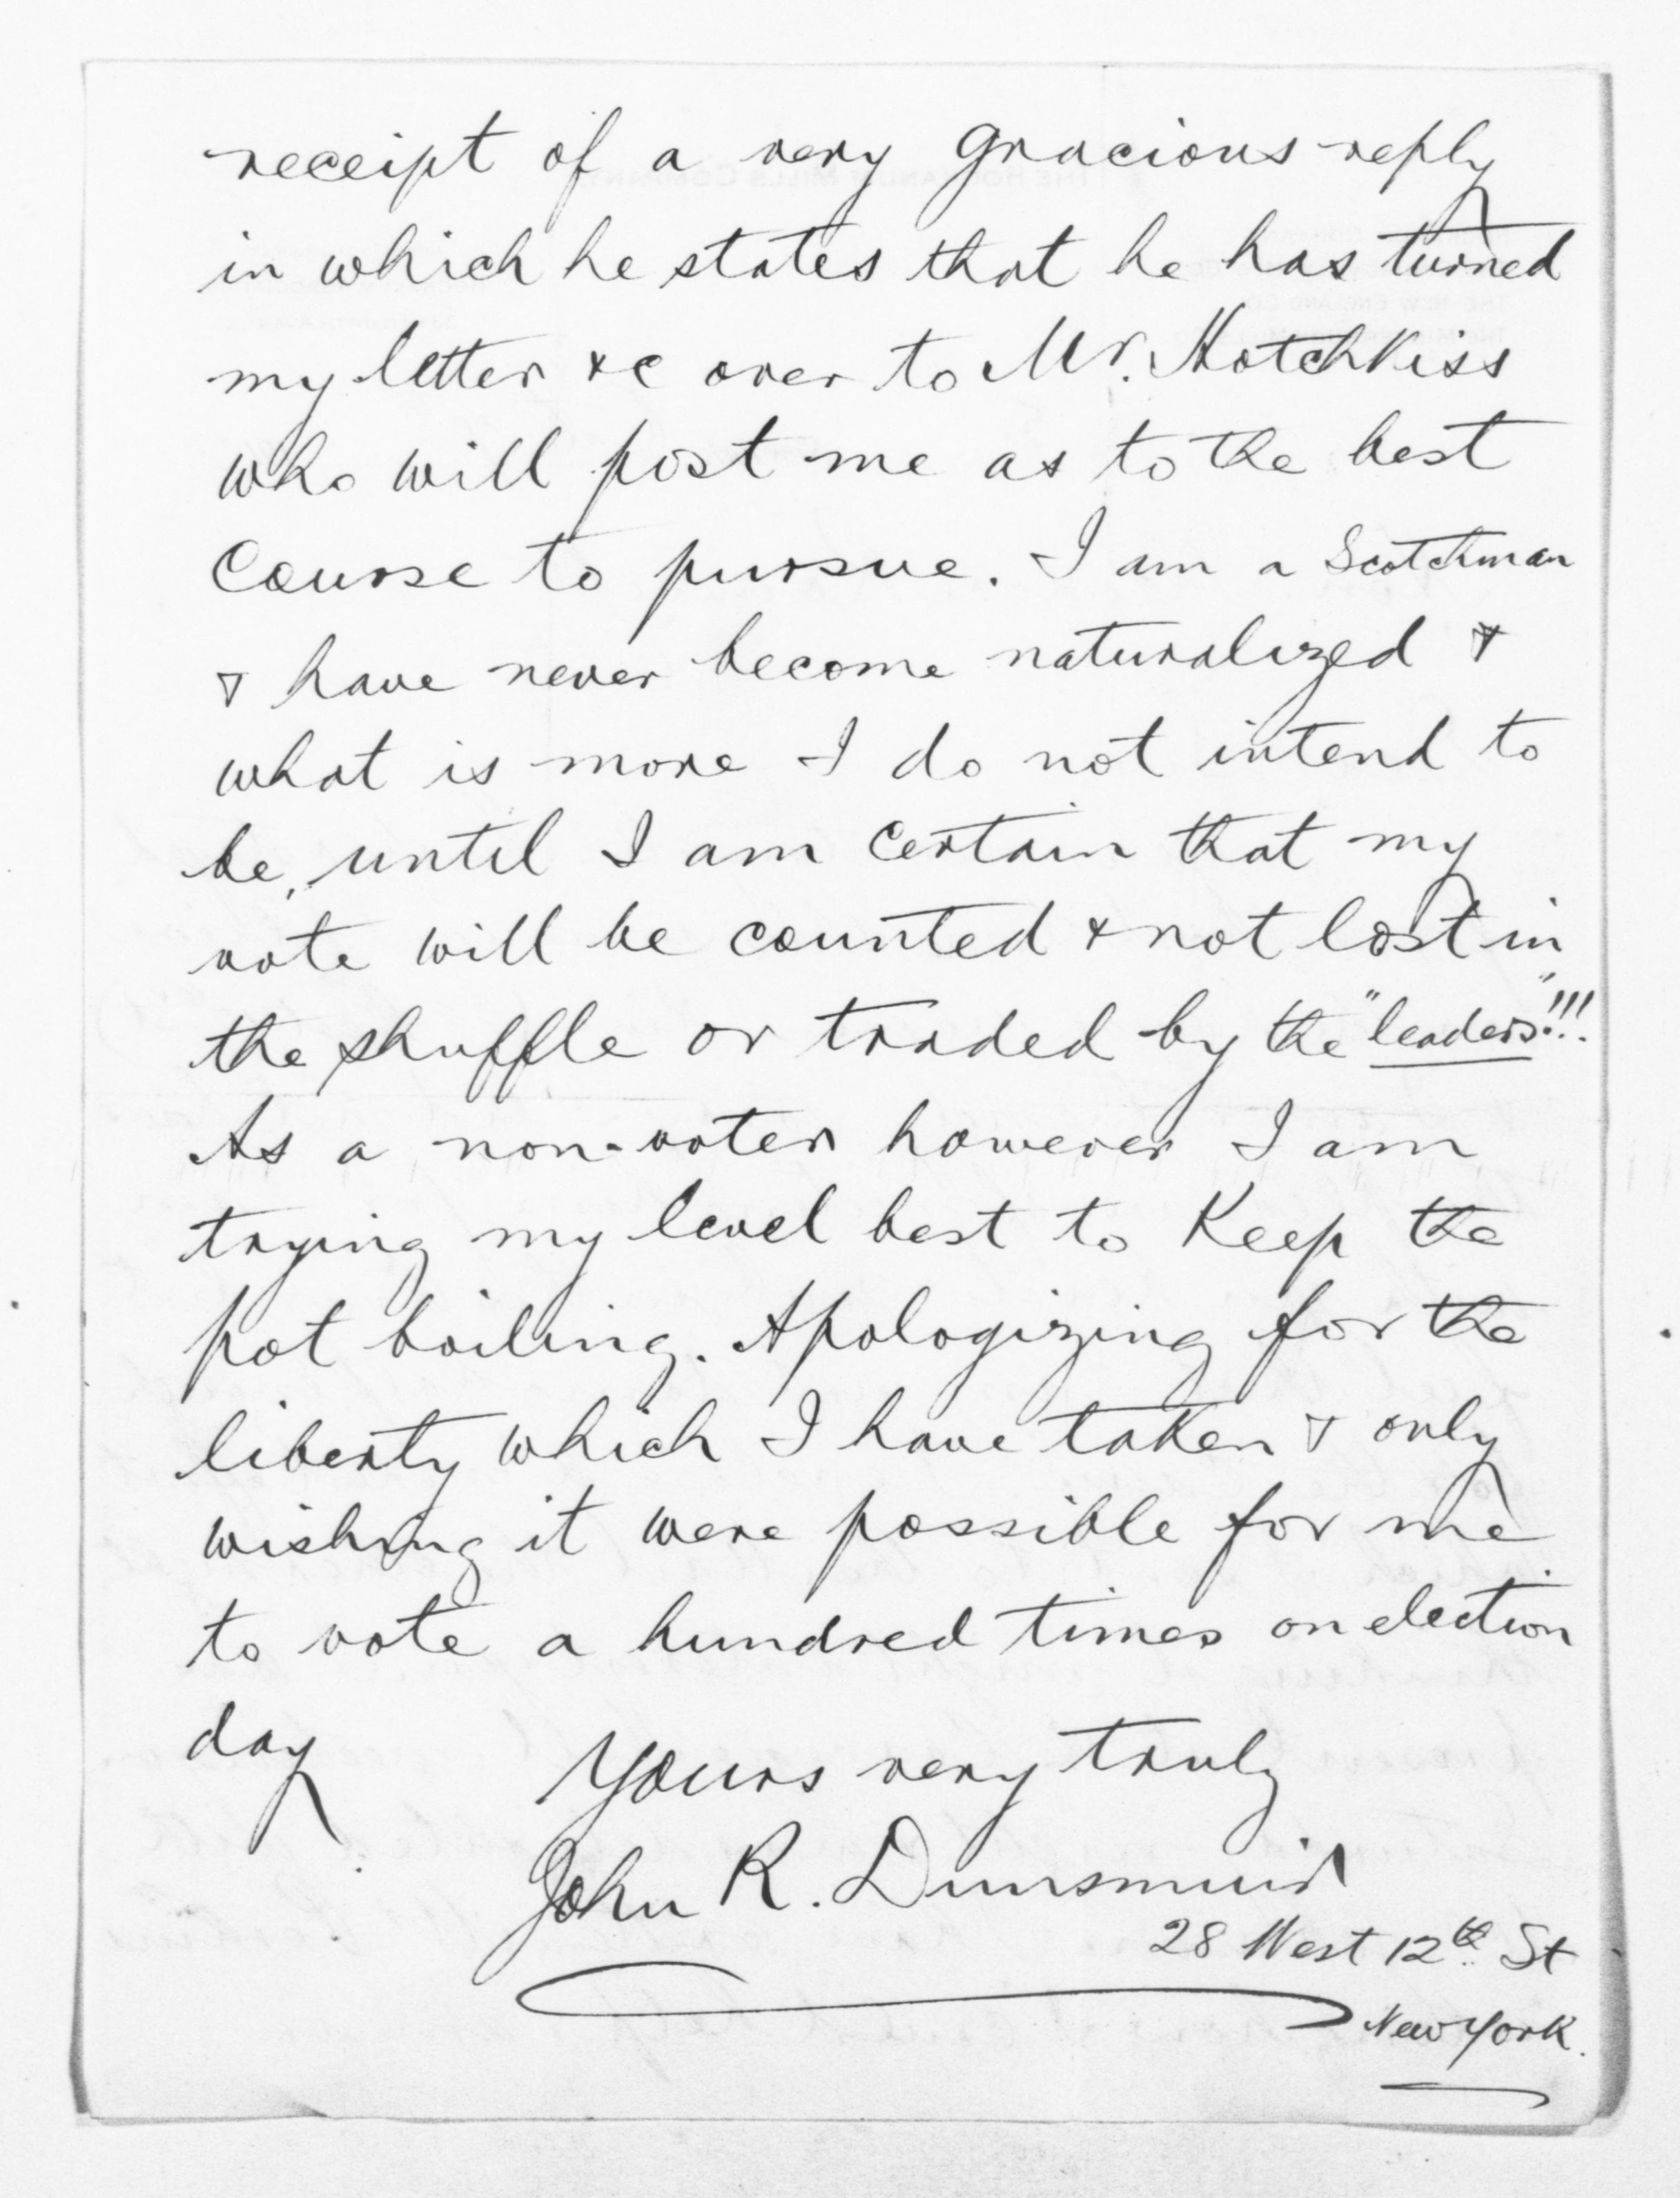 receipt of a very gracious reply
in which he states that he has turned
my letter &c over to Mr. Hotchkiss
who will post me as to the best
Course to pursue. I am a Scotchman
& have never become naturalized &
what is more I do not intend to
be, until I am certain that my
vote will be counted & not lost in
the shuffle or traded by the "leaders"!!!
As a non-voter however I am
trying my level best to Keep the
pot boiling. Apologizing for the
liberty which I have taken & only
wishing it were possible for me
to vote a hundred times on election
day
Yours very truly
John R. Dunsmuir
28 West 12th St
New York.